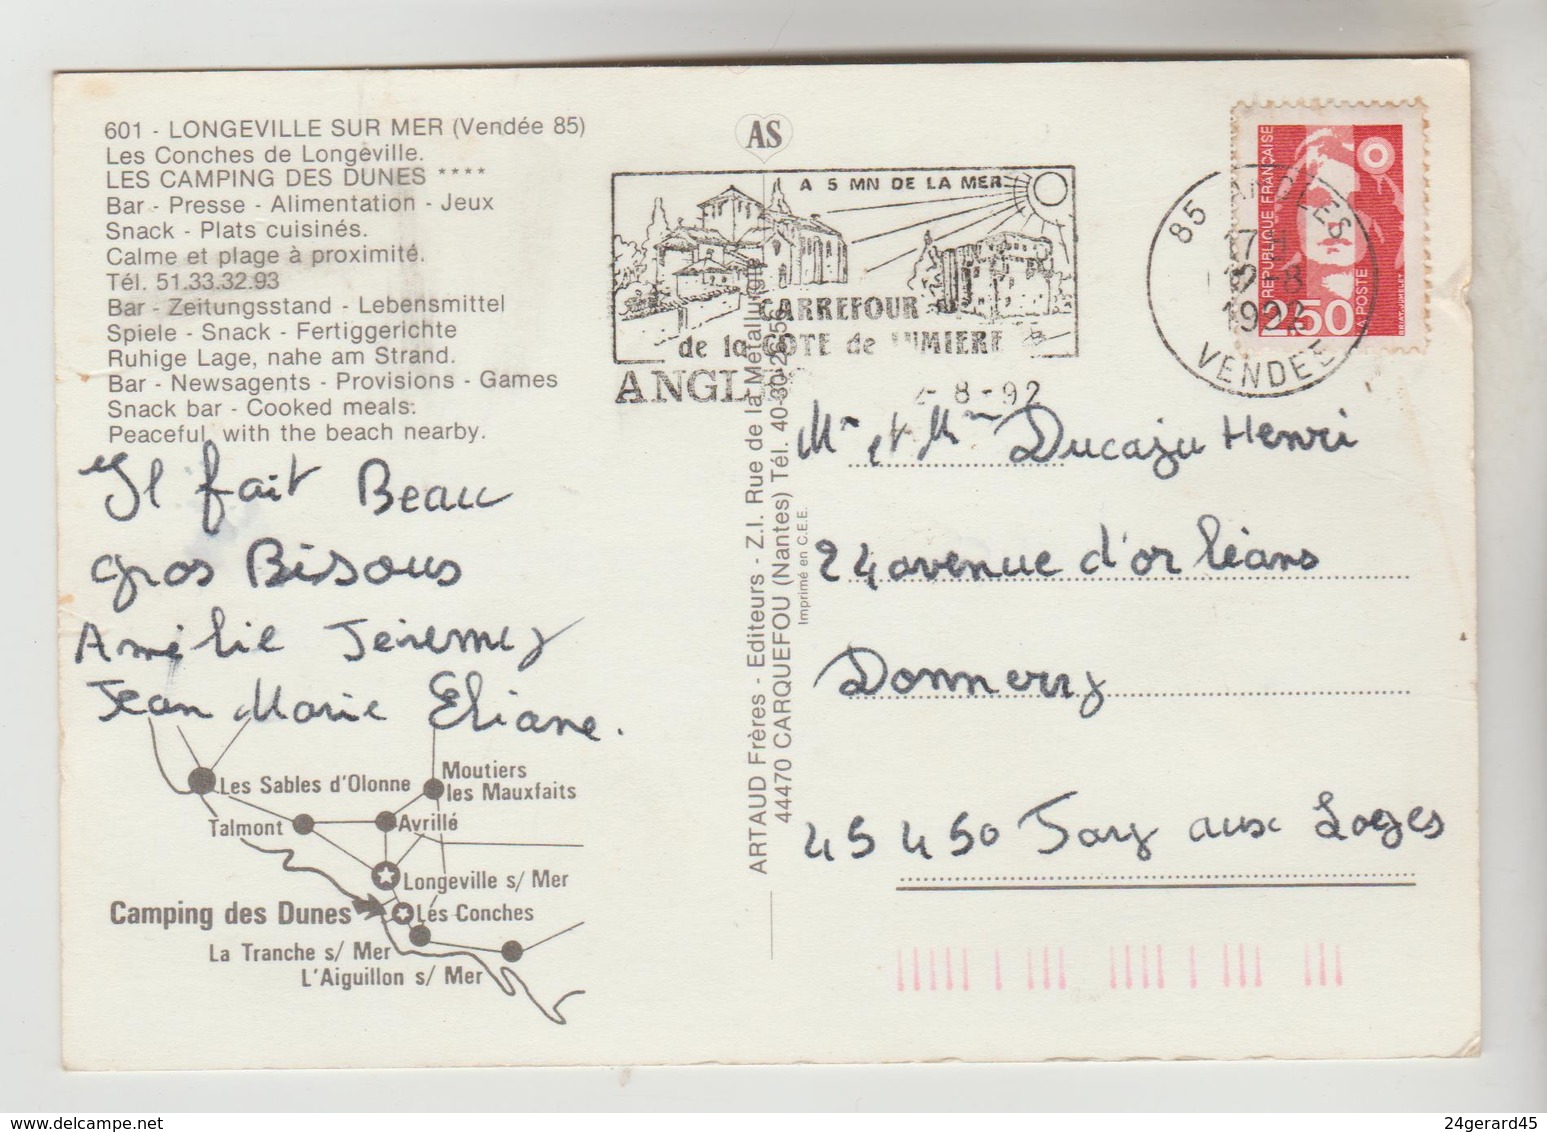 601 - LONGEVILLE SUR MER (Vendée 85)
Les Conches de Longeville.
LES CAMPING DES DUNES ****
Bar - Presse - Alimentation - Jeux
Snack - Plats cuisinés.
Calme et plage à proximité.
Tél. 51.33.32.93
Bar - Zeitungsstand - Lebensmittel
Spiele - Snack - Fertiggerichte
Ruhige Lage, nahe am Strand.
Bar - Newsagents - Provisions - Games
Snack bar - Cooked meals:
Peaceful, with the beach nearby.
Il fait Beau
gros Bisous
Amélie Jéremy
Jean Marie Eliane.
Les Sables d'Olonne
Moutiers
les Mauxfaits
Talmont
Avrillé
Longeville s/ Mer
Camping des Dunes
Les Conches
La Tranche s/ Mer
L'Aiguillon s/ Mer
AS
A 5 MN DE LA MER
CARREFOUR
de la COTE de LUMIERE
-8-92
ARTAUD Frères - Editeurs - Z.I. Rue de la Métallurgie
44470 CARQUEFOU (Nantes) Tél.
Imprimé en C.E.E.
85
17 H
-8
1992
VENDEE
REPUBLIQUE FRANÇAISE
2,50
LA POSTE
BRIAT-JUMELET
Mr et Mme Ducaju Henri
24 avenue d'orléans
Donnery
45450 Fay aux Loges
24gerard45